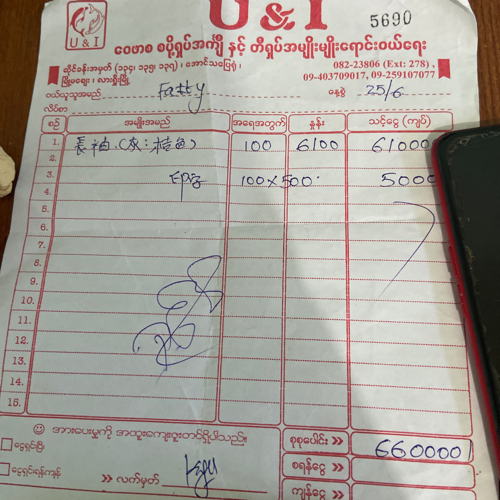 U & I
5690
U & I
ဝေဟာစ စပို့ရှပ်အင်္ကျီ နှင့် တီရှပ်အမျိုးမျိုးရောင်းဝယ်ရေး
ဆိုင်ခန်းအမှတ် (၁၃၄၊ ၁၃၅၊ ၁၃၇)၊ အောင်သပြေရုံ၊
မြို့မဈေး၊ လားရှိုးမြို့
082-23806 (Ext: 278) ,
09-403709017, 09-259107077
ဝယ်ယူသူအမည် Fatty နေ့စွဲ 25/6
လိပ်စာ
စဉ် အမျိုးအမည် အရေအတွက် နှုန်း သင့်ငွေ (ကျပ်)
1. 長袖 100 6100 61000
2. 印字 100x500 5000
3.
4.
5.
6.
7.
8.
9.
10.
11.
12.
13.
14.
15.
အားပေးမှုကို အထူးကျေးဇူးတင်ရှိပါသည်။
စုစုပေါင်း >> 660000
ငွေရှင်းပြီး
စရန်ငွေ >>
ငွေရှင်းရန်ကျန်
>> လက်မှတ်
ကျန်ငွေ >>